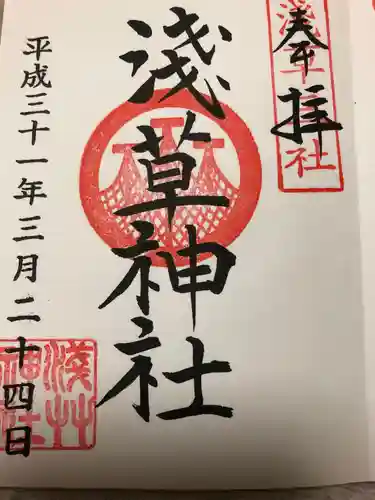 奉拝
浅草神社
浅草神社
平成三十一年三月二十四日
浅草神社